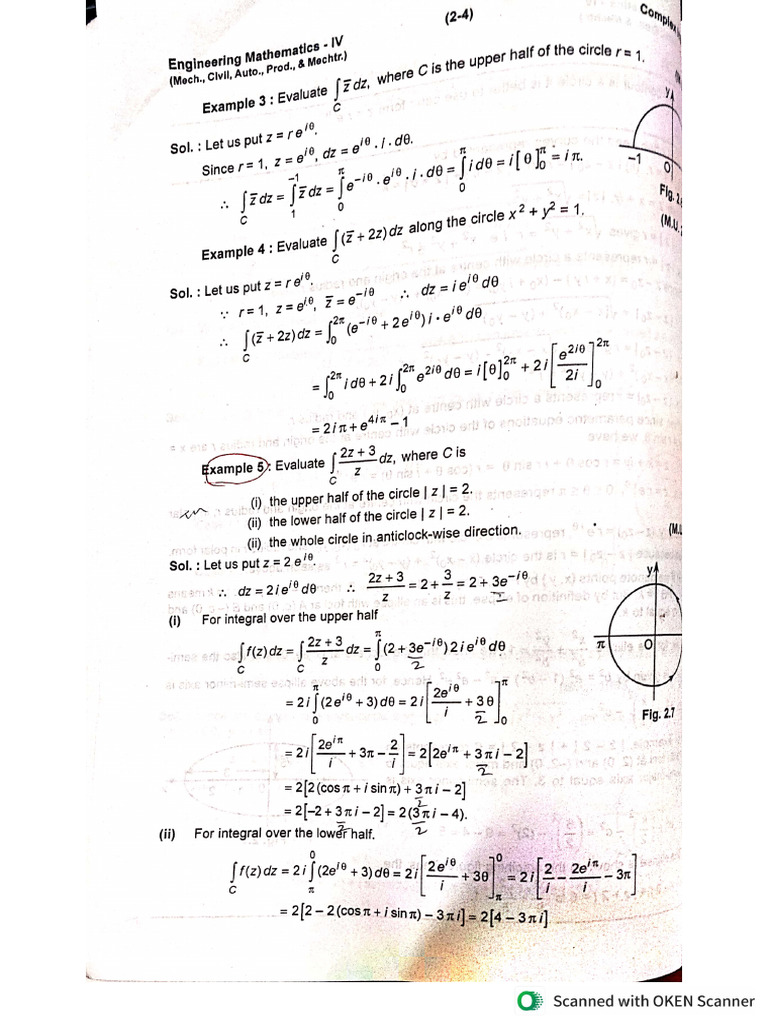 (2-4)
Complex
Engineering Mathematics - IV
(Mech., Civil, Auto., Prod., & Mechtr.)
Example 3 : Evaluate ∫_C z̄ dz, where C is the upper half of the circle r = 1.
Sol. : Let us put z = r e^{iθ}.
Since r = 1, z = e^{iθ}, dz = e^{iθ} . i . dθ.
∴ ∫_C z̄ dz = ∫_1^{-1} z̄ dz = ∫_0^π e^{-iθ} . e^{iθ} . i . dθ = ∫_0^π i dθ = i [θ]_0^π = iπ.
y
-1 O
Fig. 2.
(M.U.
Example 4 : Evaluate ∫_C (z̄ + 2z) dz along the circle x² + y² = 1.
Sol. : Let us put z = r e^{iθ}
∵ r = 1, z = e^{iθ}, z̄ = e^{-iθ} ∴ dz = i e^{iθ} dθ
∴ ∫_C (z̄ + 2z) dz = ∫_0^{2π} (e^{-iθ} + 2e^{iθ}) i • e^{iθ} dθ
= ∫_0^{2π} i dθ + 2i ∫_0^{2π} e^{2iθ} dθ = i [θ]_0^{2π} + 2i [e^{2iθ}/2i]_0^{2π}
= 2iπ + e^{4iπ} - 1
Example 5 : Evaluate ∫_C (2z + 3)/z dz, where C is
(i) the upper half of the circle | z | = 2.
(ii) the lower half of the circle | z | = 2.
(ii) the whole circle in anticlock-wise direction.
(M.U
Sol. : Let us put z = 2 e^{iθ}.
∴ dz = 2i e^{iθ} dθ ∴ (2z + 3)/z = 2 + 3/z = 2 + 3e^{-iθ}/2
(i) For integral over the upper half
∫_C f(z) dz = ∫_C (2z + 3)/z dz = ∫_0^π (2 + 3e^{-iθ}/2) 2i e^{iθ} dθ
y
π O
Fig. 2.7
= 2i ∫_0^π (2e^{iθ} + 3) dθ = 2i [2e^{iθ}/i + 3θ/2]_0^π
= 2i [2e^{iπ}/i + 3π - 2/i] = 2[2e^{iπ} + 3πi/2 - 2]
= 2[2(cos π + i sin π) + 3πi/2 - 2]
= 2[-2 + 3πi/2 - 2] = 2(3πi/2 - 4).
(ii) For integral over the lower half.
∫_C f(z) dz = 2i ∫_π^0 (2e^{iθ} + 3) dθ = 2i [2e^{iθ}/i + 3θ]_π^0 = 2i [2/i - 2e^{iπ}/i - 3π]
= 2[2 - 2(cos π + i sin π) - 3πi] = 2[4 - 3πi]
Scanned with OKEN Scanner